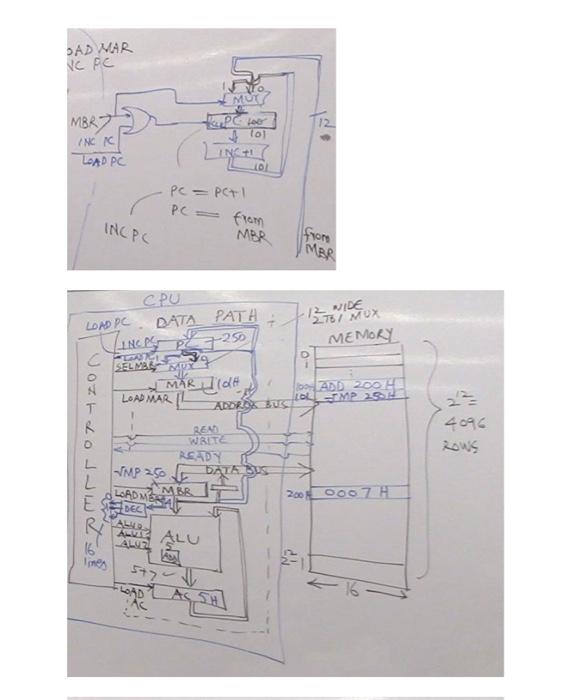 LOAD MAR
INC PC
1
0
MUX
MBR
PC
101
INC PC
LOAD PC
INC+1
101
12
PC = PC+1
PC = from
MBR
INC PC
from
MBR
CPU
LOAD PC
DATA PATH
12 WIDE
2 TO 1 MUX
INC PC
PC
250
MEMORY
LOAD PC
0
SEL MBR
MUX
1
MAR
101H
100H
ADD 200H
LOAD MAR
101
JMP 250H
ADDRESS BUS
2^12 =
4096
ROWS
READ
WRITE
READY
JMP 250
DATA BUS
LOAD MBR
MBR
200H
0007H
DEC
CONTROLLER
ALU0
ALU1
ALU2
ALU
5
ADD
16
lines
2^12-1
5+7
16
LOAD
AC
AC 5H